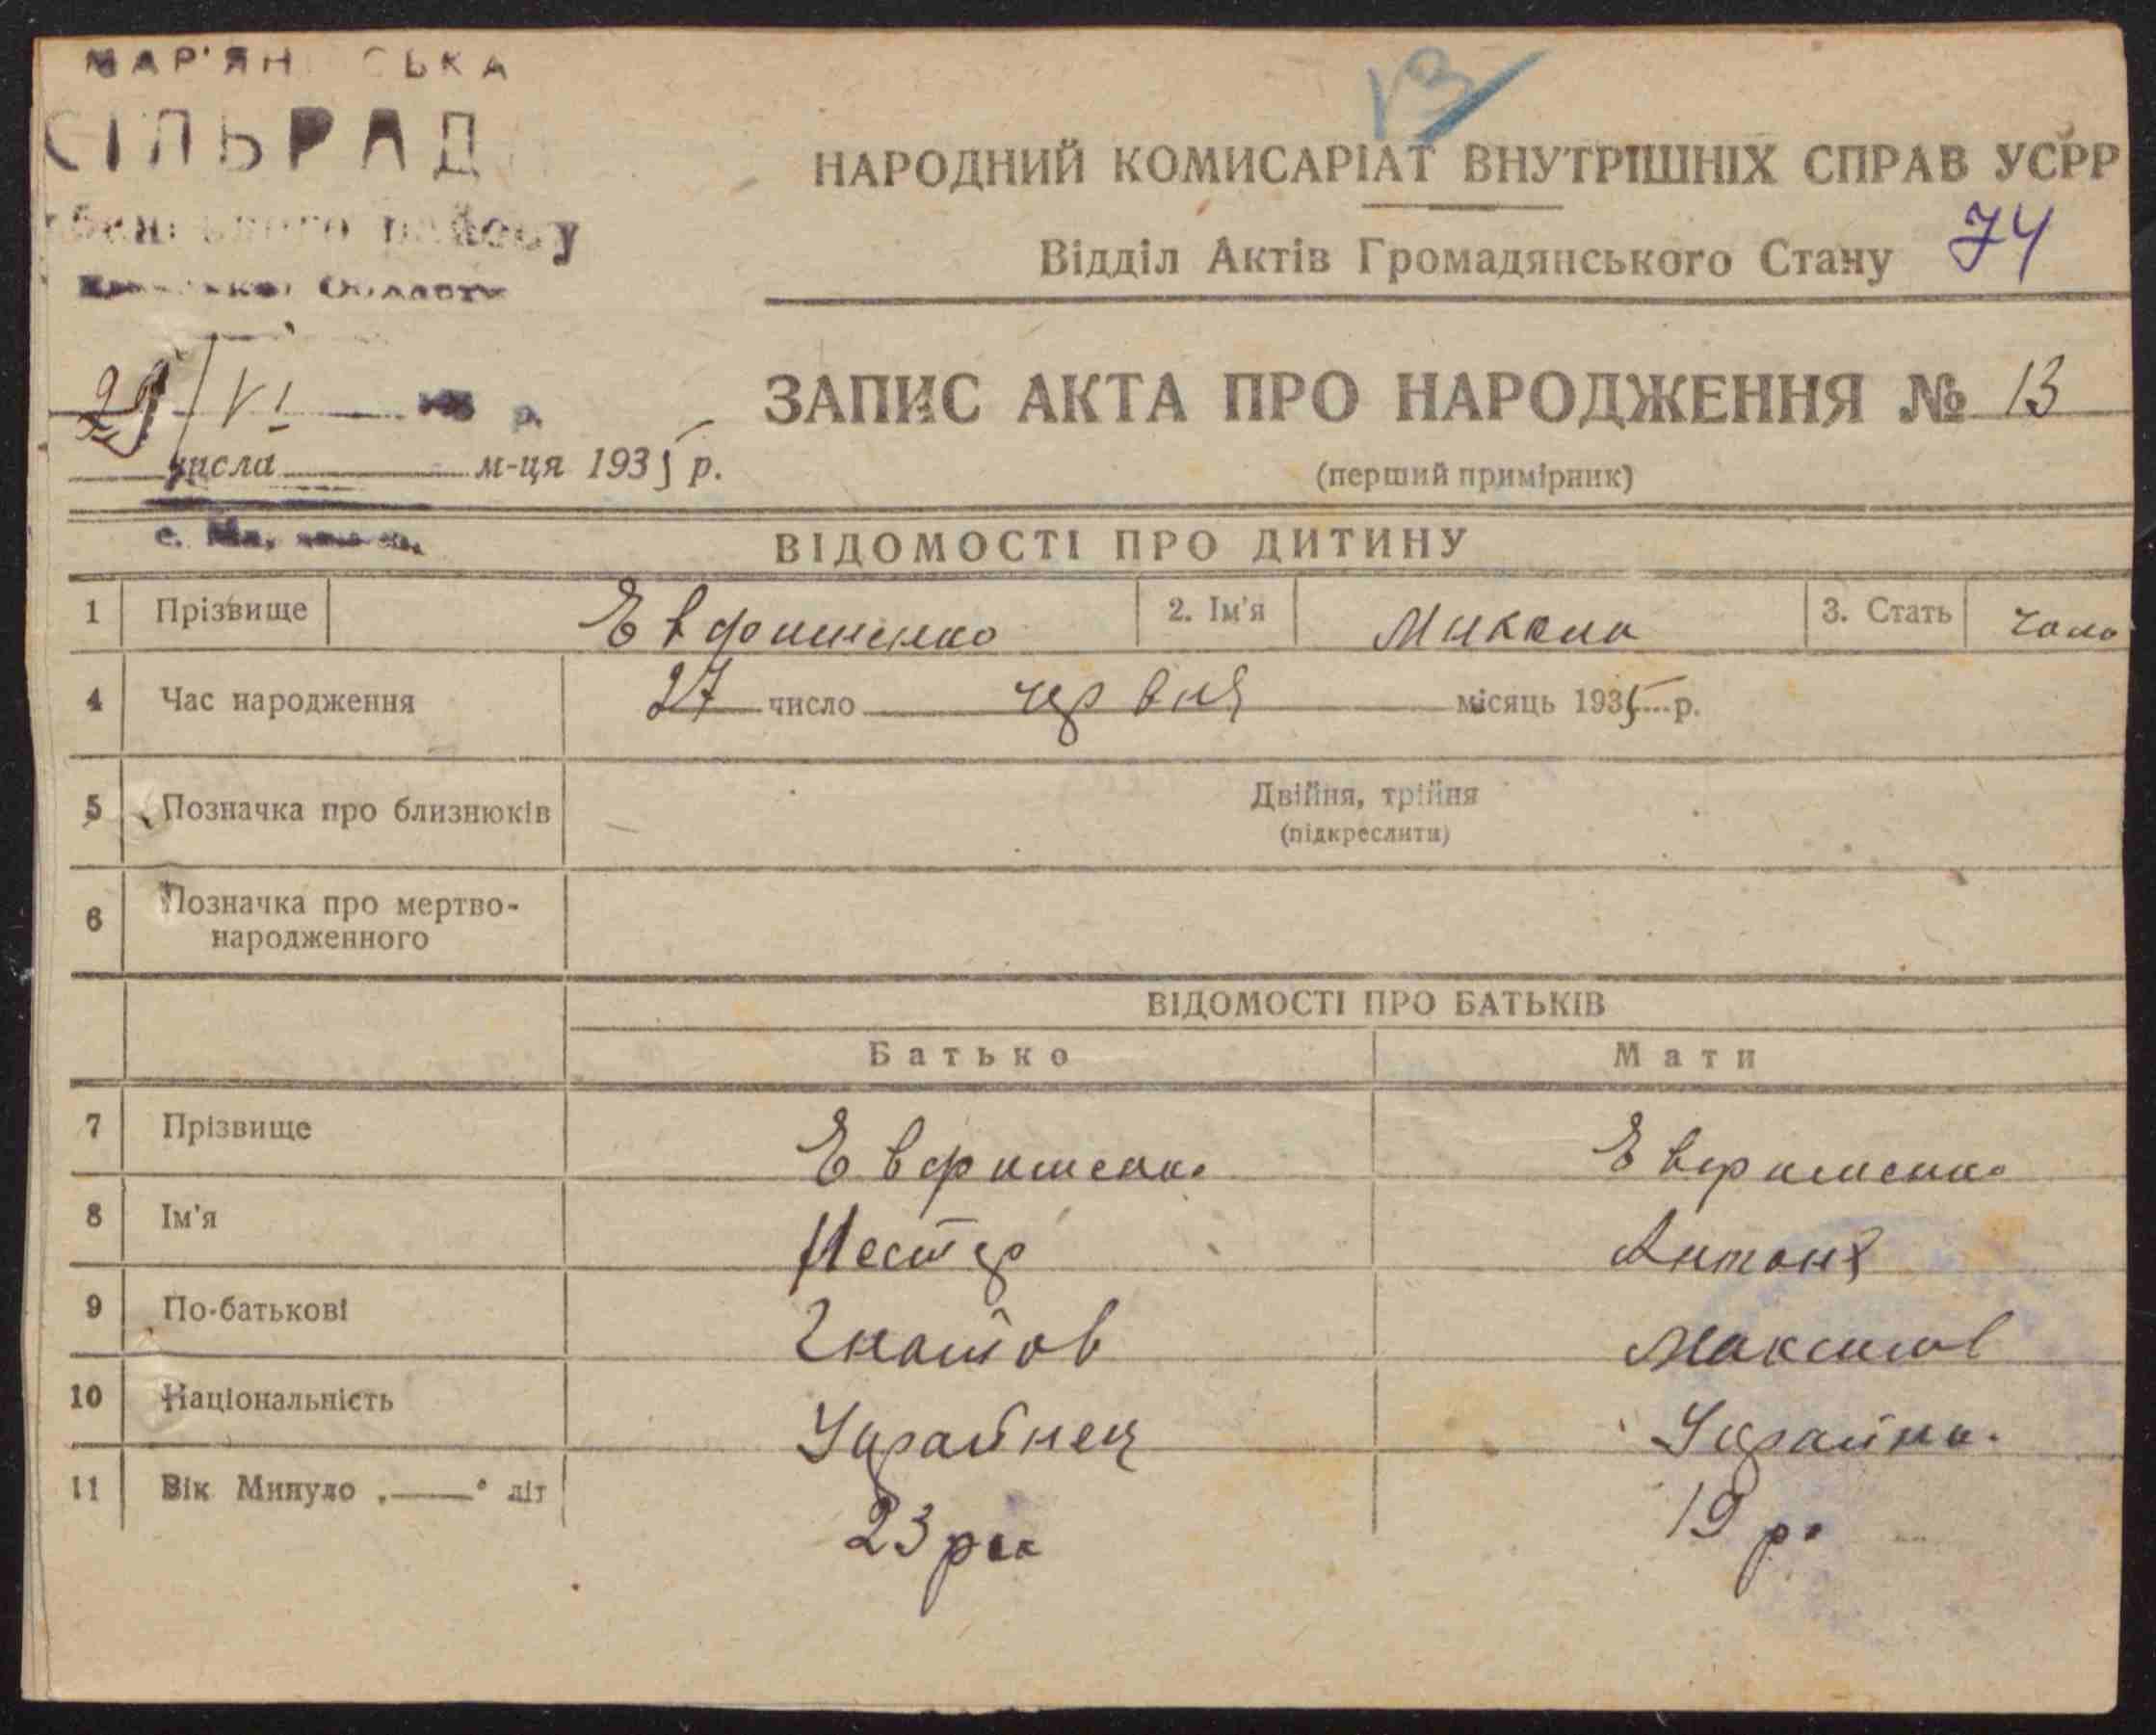 МАР'ЯН СЬКА
СІЛЬРАД
району
Области
13
НАРОДНИЙ КОМИСАРІАТ ВНУТРІШНІХ СПРАВ УСРР
Відділ Актів Громадянського Стану 74
29/VI р.
числа м-ця 1935 р.
ЗАПИС АКТА ПРО НАРОДЖЕННЯ № 13
(перший примірник)
с.
ВІДОМОСТІ ПРО ДИТИНУ
1 Прізвище Евфишенко 2. Ім'я Микола 3. Стать чоло
4 Час народження 27 число червня місяць 1935 р.
5 Позначка про близнюків Двійня, трійня
(підкреслити)
6 Позначка про мертво-
народженного
ВІДОМОСТІ ПРО БАТЬКІВ
Батько Мати
7 Прізвище Евфишенко Евфишенко
8 Ім'я Нестер Антоня
9 По-батькові Гнатов Максимов
10 Національність Украйнец Украйнка.
11 Вік Минуло „—“ літ 23 рок 19 р.